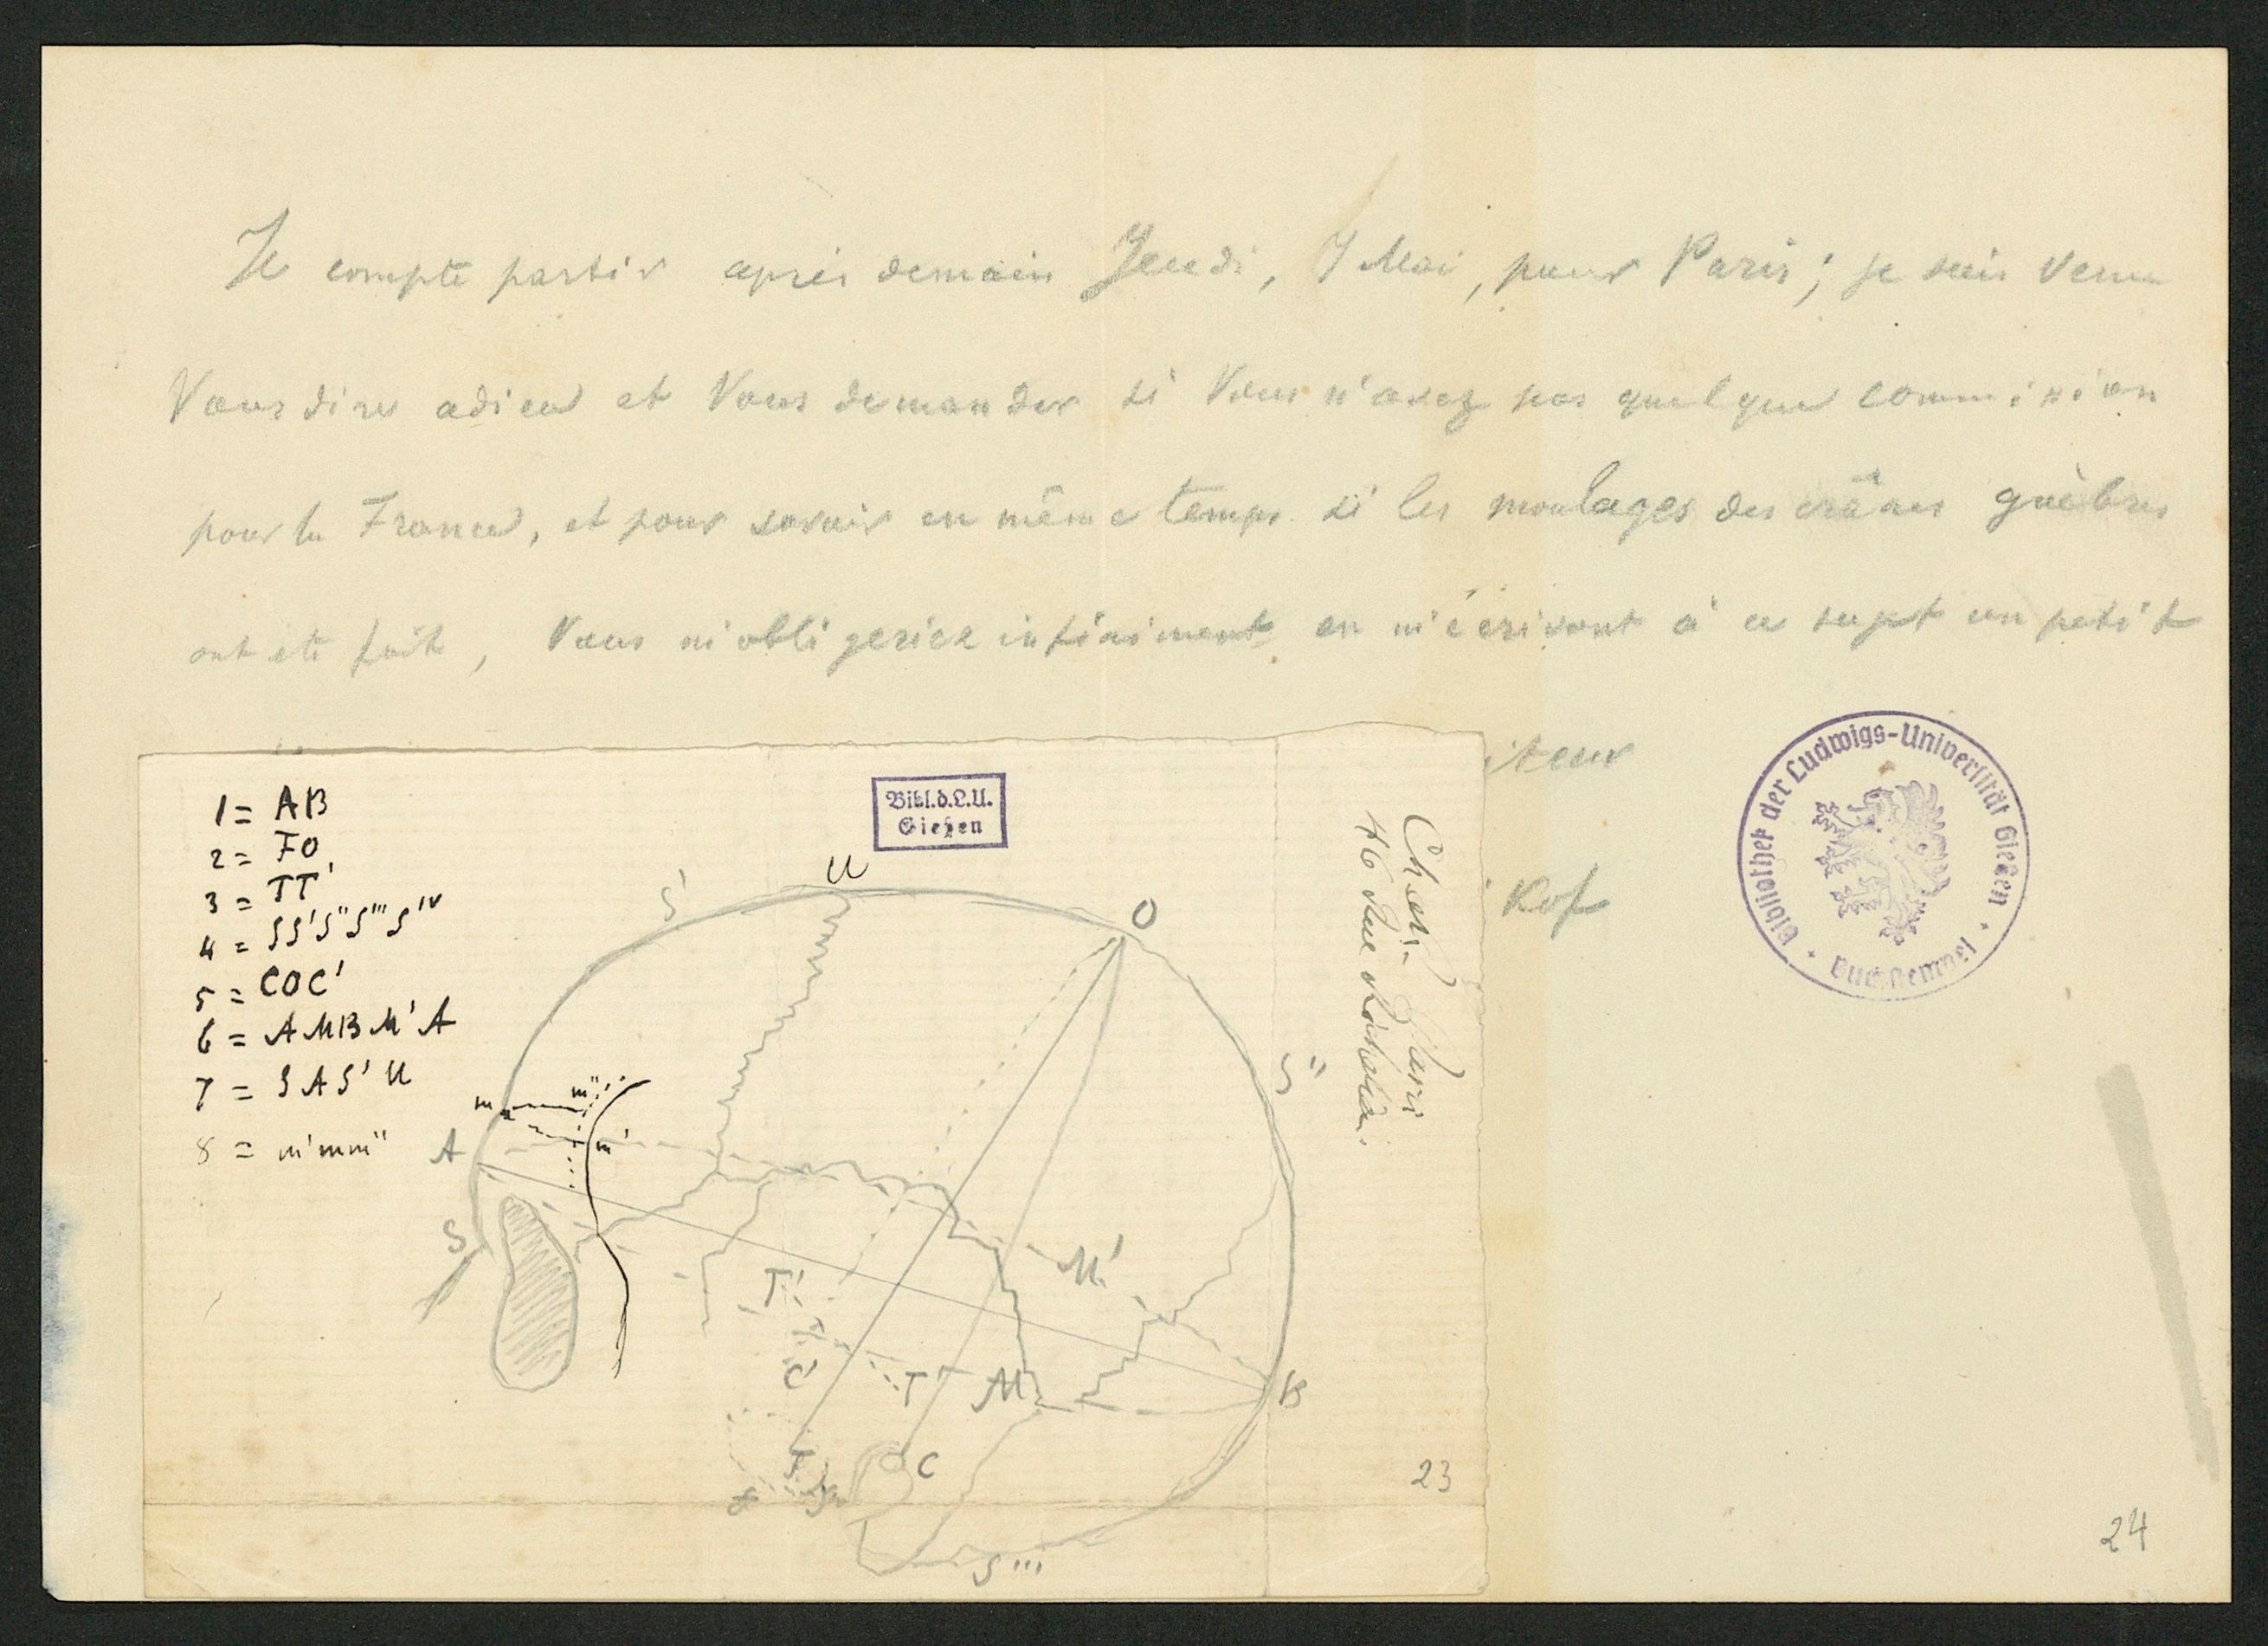 Je compte partir après demain Jeudi, 7 Mai, pour Paris; je suis venu
Vous dire adieu et Vous demander si Vous n'avez pas quelque commission
pour la France, et pour savoir en même temps si les moulages des crânes guèbres
ont été fait, Vous m'obligeriez infiniment en m'écrivant à ce sujet un petit
iteur
kof
Bibliothek der Ludwigs-Universität Gießen
Bibl.d.L.U.
Gießen
1 = AB
2 = FO
3 = TT'
4 = SS'S''S'''S'ᵛ
5 = COC'
6 = AMBM'A
7 = SAS'U
8 = m'mm''
Paris
46 Rue
S'
U
O
S''
m
m''
m'
A
S
M'
T'
C'
T
M
B
C
S'''
23
24